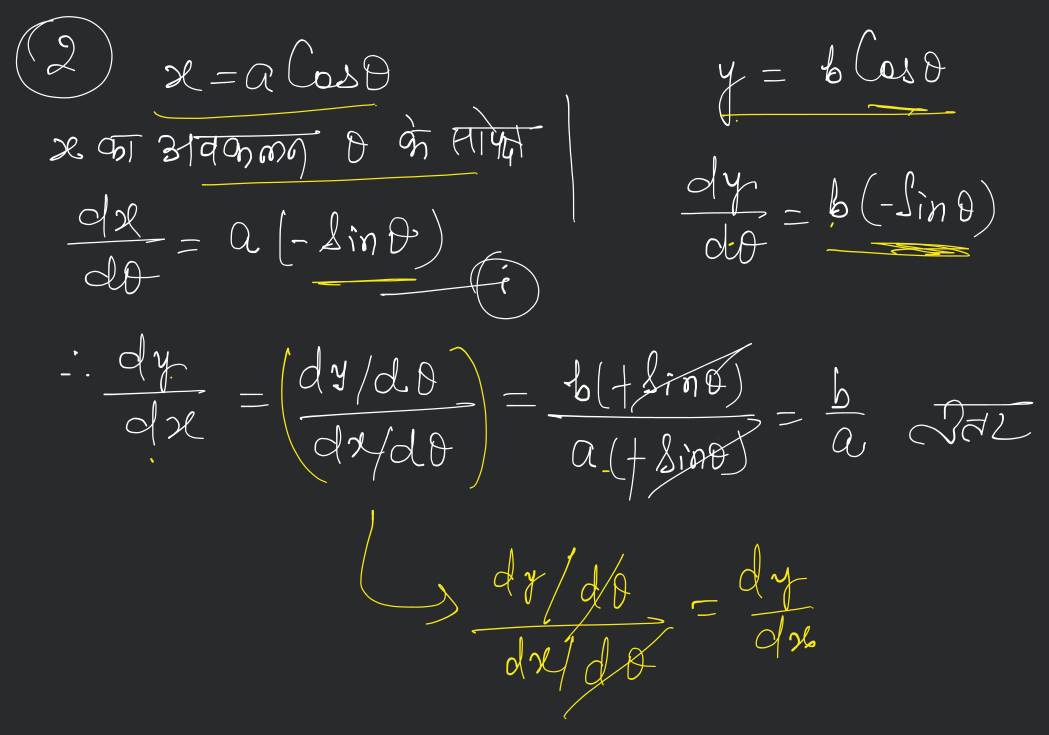 2
x = a Cosθ
x का अवकलन θ के सापेक्ष
dx/dθ = a (- Sinθ) — i
y = b Cosθ
dy/dθ = b (-Sinθ)
∴ dy/dx = (dy/dθ / dx/dθ) = b(+Sinθ) / a(+Sinθ) = b/a उत्तर
dy/dθ / dx/dθ = dy/dx